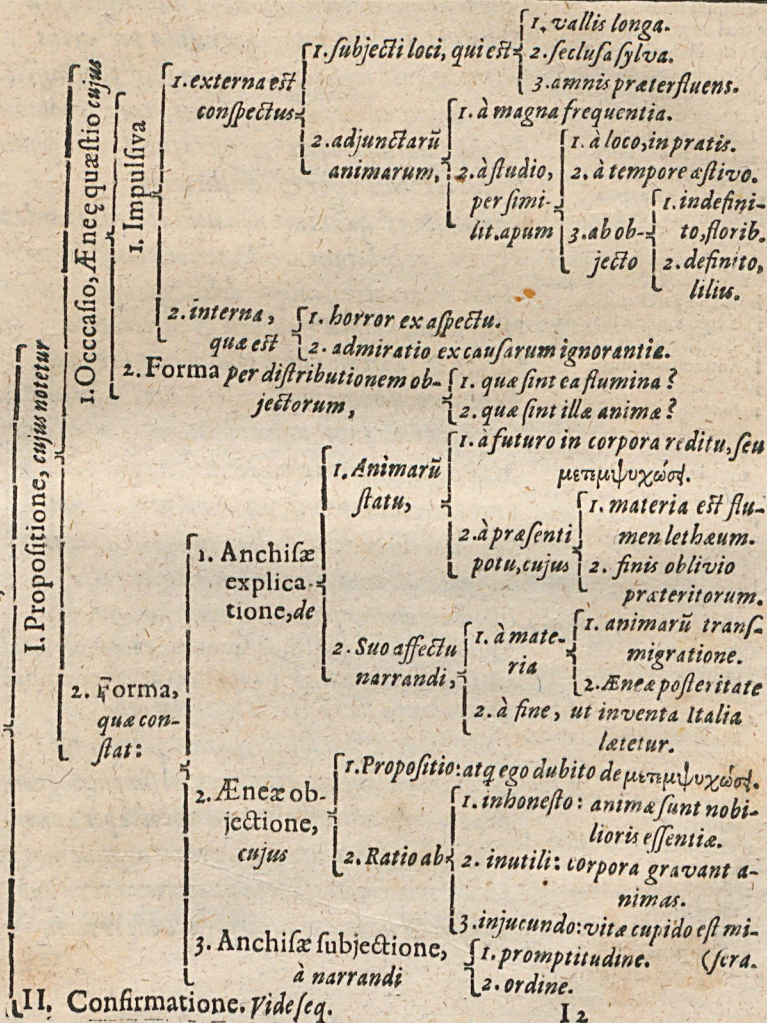 I. Propositione, cujus notetur
1. Occcasio, Æneę quæstio cujus
1. Impulsiva
1. externa est
conspectus
1. subjecti loci, qui est
1. vallis longa.
2. seclusa sylva.
3. amnis præterfluens.
2. adjunctarũ
animarum,
1. à magna frequentia.
2. à studio,
per simi-
lit. apum
1. à loco, in pratis.
2. à tempore æstivo.
3. ab ob-
jecto
1. indefini-
to, florib.
2. definito,
liliis.
2. interna,
quæ est
1. horror ex aspectu.
2. admiratio ex causarum ignorantia.
2. Forma per distributionem ob-
jectorum,
1. quæ sint ea flumina?
2. quæ sint illæ animæ?
2. Forma,
quæ con-
stat:
1. Anchisæ
explica-
tione, de
1. Animarũ
statu,
1. à futuro in corpora reditu, seu
μετεμψυχώσῃ.
2. à præsenti
potu, cujus
1. materia est flu-
men lethæum.
2. finis oblivio
præteritorum.
2. Suo affectu
narrandi,
1. à mate-
ria
1. animarũ trans-
migratione.
2. Æneæ posteritate
2. à fine, ut inventa Italia
lætetur.
2. Æneæ ob-
jectione,
cujus
1. Propositio: atq ego dubito de μετεμψυχώσῃ.
2. Ratio ab
1. inhonesto: animæ sunt nobi-
lioris essentiæ.
2. inutili: corpora gravant a-
nimas.
3. injucundo: vitæ cupido est mi-
(sera.
3. Anchisæ subjectione,
à narrandi
1. promptitudine.
2. ordine.
II. Confirmatione. Vide seq.
I 2